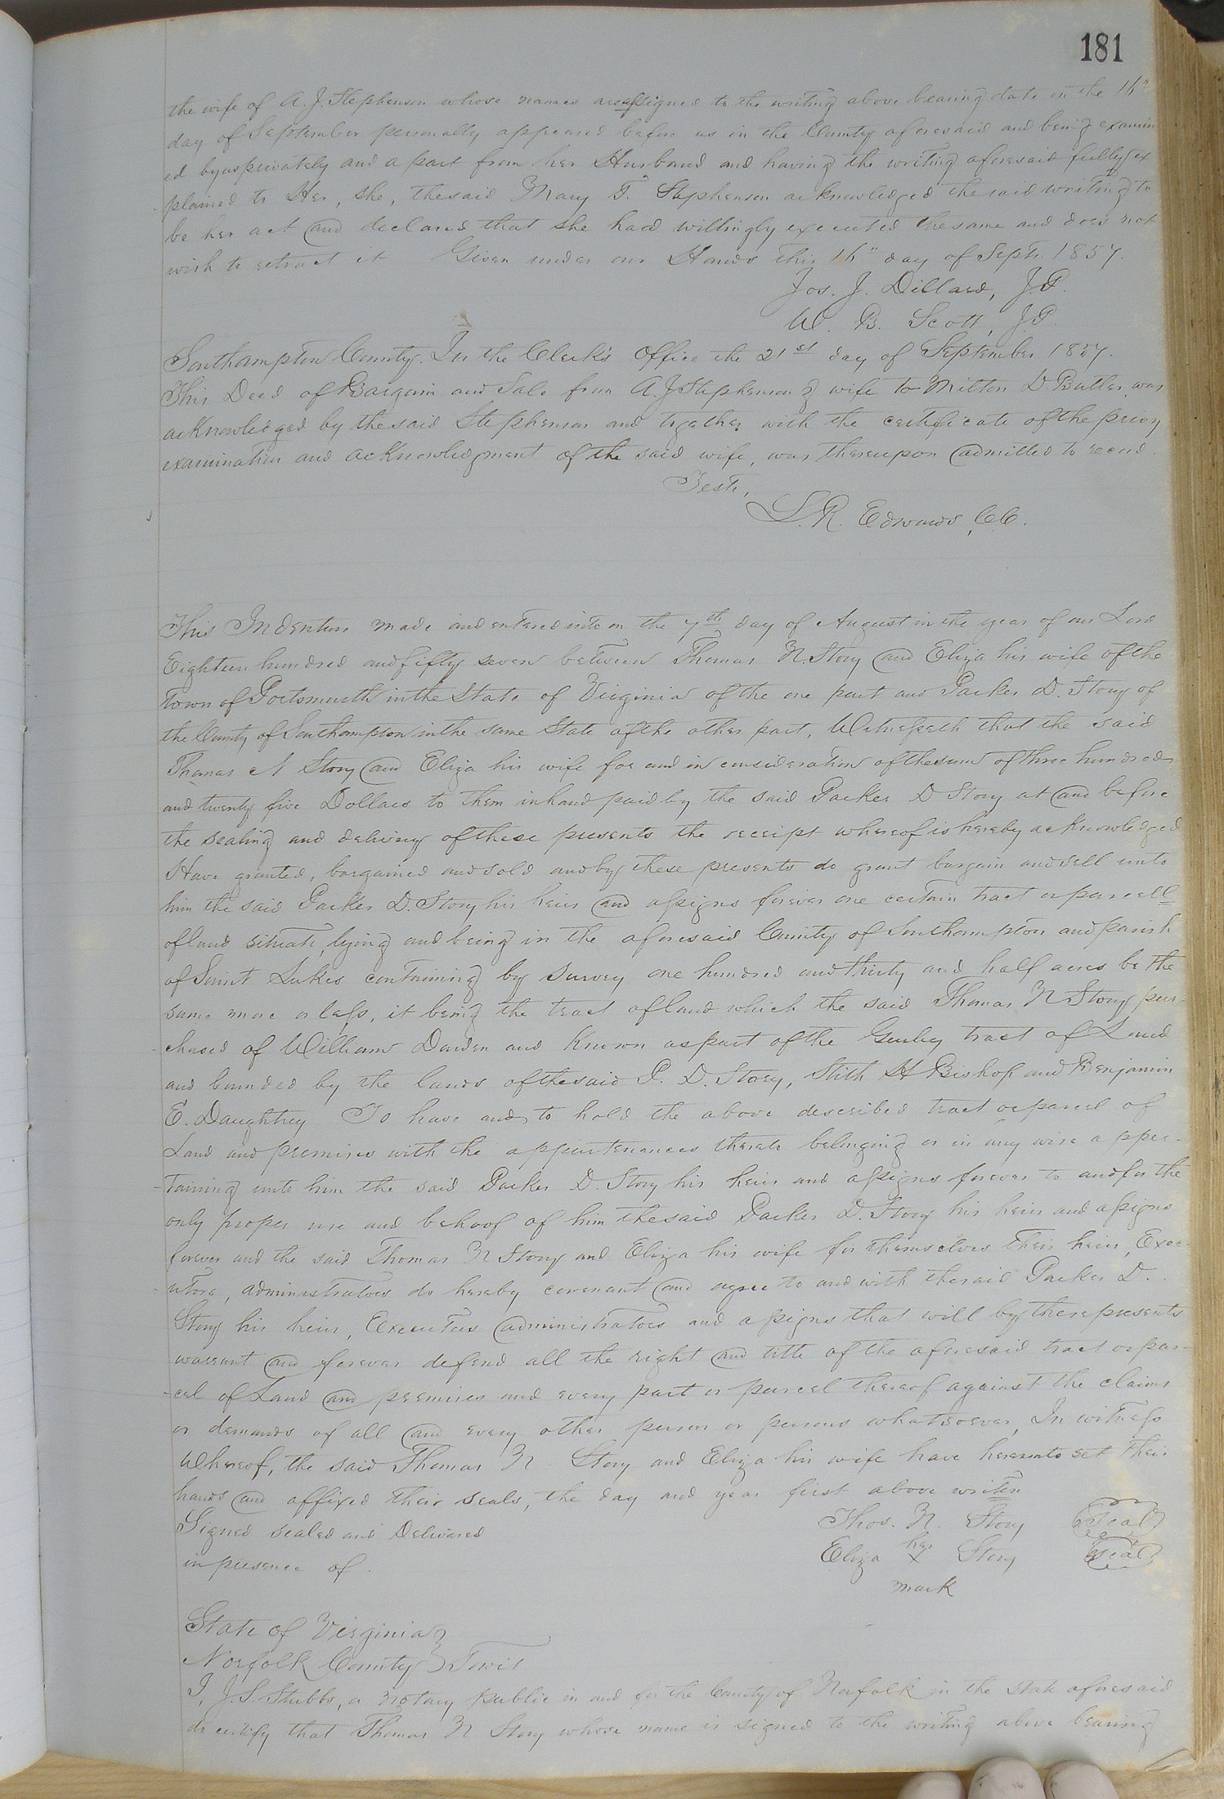 181
the wife of A. J. Stephenson whose names are assigned to the writing above bearing date on the 16"
day of September personally appeared before us in the County aforesaid and being examin
ed by us privately and apart from her Husband and having the writing aforesaid fully ex
plained to Her, she, the said Mary T. Stephenson acknowledged the said writing to
be her act and declared that she had willingly executed the same and does not
wish to retract it Given under our Hands this 16" day of Sept. 1857.
Jos. J. Dillard, J.P.
W. B. Scott, J.P.
Southampton County. In the Clerk's Office the 21st day of September 1857.
This Deed of Bargain and Sale from A. J. Stephenson & wife to Milton D Butler, was
acknowledged by the said Stephenson and together with the certificate of the privy
examination and acknowledgment of the said wife, was thereupon admitted to record.
Teste,
L. R. Edwards, C.C.
This Indenture made and entered into on the 7th day of August in the year of our Lord
Eighteen hundred and fifty seven between Thomas N. Story and Eliza his wife of the
Town of Portsmouth in the State of Virginia of the one part and Parker D. Story of
the County of Southampton in the same State of the other part, Witnesseth that the said
Thomas N Story and Eliza his wife for and in consideration of the sum of three hundred
and twenty five Dollars to them in hand paid by the said Parker D Story at and before
the sealing and delivery of these presents the receipt whereof is hereby acknowledged
Have granted, bargained and sold and by these presents do grant bargain and sell unto
him the said Parker D. Story his heirs and assigns forever one certain tract or parcell
of land situate, lying and being in the aforesaid County of Southampton and parish
of Saint Lukes containing by survey one hundred and thirty and half acres be the
same more or less, it being the tract of land which the said Thomas N Story pur-
chased of William Darden and known as part of the Gurley tract of Land
and bounded by the lands of the said P. D. Story, Stith H Bishop and Benjamin
E. Daughtrey To have and to hold the above described tract or parcel of
Land and premises with the appurtenances thereto belonging or in any wise apper-
taining unto him the said Parker D. Story his heirs and assigns forever to and for the
only proper use and behoof of him the said Parker D. Story his heirs and assigns
forever and the said Thomas N Story and Eliza his wife for themselves their heirs, Exec-
utors, administrators do hereby covenant and agree to and with the said Parker D.
Story his heirs, Executors administrators and assigns that will by these presents
warrant and forever defend all the right and title of the aforesaid tract or par-
cel of Land and premises and every part or parcel thereof against the claims
or demands of all and every other person or persons whatsoever, In witness
Whereof, the said Thomas N. Story and Eliza his wife have hereunto set their
hands and affixed their seals, the day and year first above writen
Signed sealed and Delivered Thos. N. Story Seal
in presence of. Eliza her x Story Seal
mark
State of Virginia }
Norfolk County } Towit
I, J. S. Stubbs, a notary public in and for the County of Norfolk in the state aforesaid
do certify that Thomas N Story whose name is signed to the writing above bearing